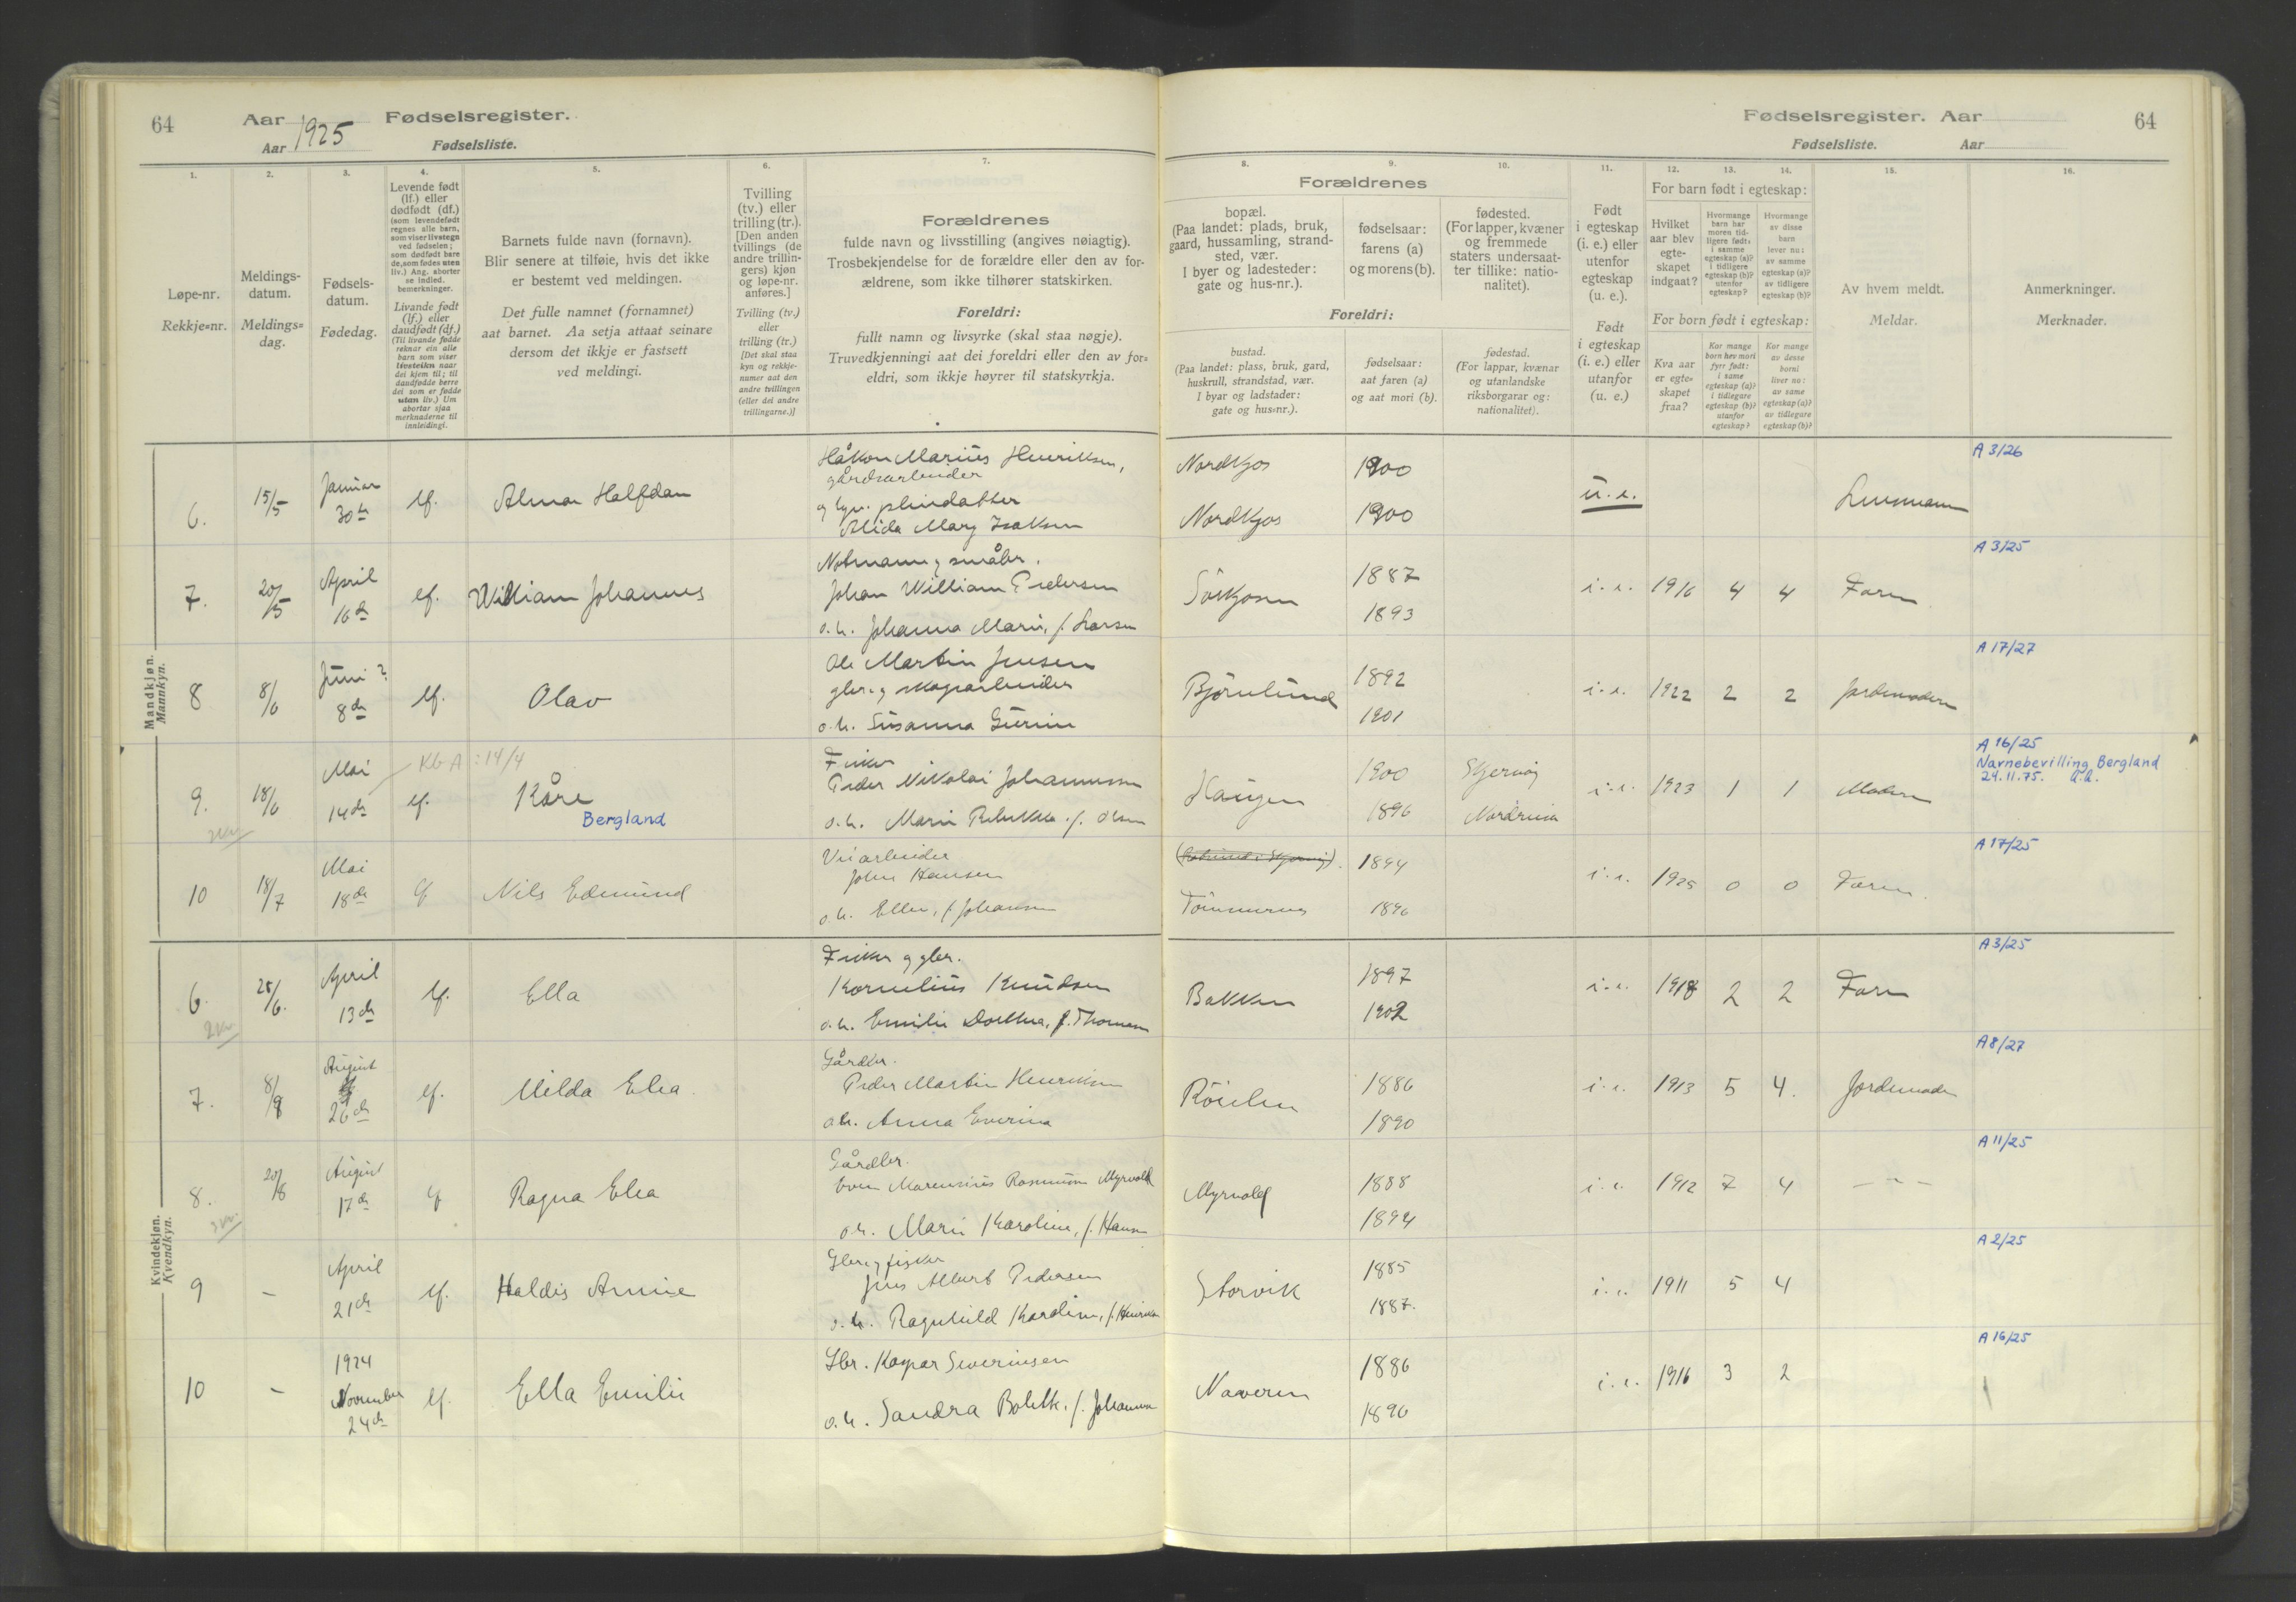 64 Aar 1925 Fødselsregister.
Aar Fødselsliste.
Fødselsregister. Aar 64
Fødselsliste. Aar
1. 2. 3. 4. 5. 6. 7. 8. 9. 10. 11. 12. 13. 14. 15. 16.
Løpe-nr.
Rekkje=nr.
Meldings-
datum.
Meldings=
dag.
Fødsels-
datum.
Fødedag.
Levende født
(lf.) eller
dødfødt (df.)
(som levendefødt
regnes alle barn,
som viser livstegn
ved fødselen;
som dødfødt bare
de, som fødes uten
liv.) Ang. aborter
se indled.
bemerkninger.
Livande født
(lf.) eller
daudfødt (df.)
(Til livande fødde
reknar ein alle
barn som viser
livsteikn naar
dei kjem til; til
daudfødde berre
dei som er fødde
utan liv.) Um
abortar sjaa
merknaderne til
innleidingi.
Barnets fulde navn (fornavn).
Blir senere at tilføie, hvis det ikke
er bestemt ved meldingen.
Det fulle namnet (fornamnet)
aat barnet. Aa setja attaat seinare
dersom det ikkje er fastsett
ved meldingi.
Tvilling
(tv.) eller
trilling (tr.).
[Den anden
tvillings (de
andre trillin-
gers) kjøn
og løpe-nr.
anføres.]
Tvilling (tv.)
eller
trilling (tr.)
[Det skal staa
kyn og rekkje-
numer aat den
andre tvillingen
(eller dei andre
trillingarne.)]
Forældrenes
fulde navn og livsstilling (angives nøiagtig).
Trosbekjendelse for de forældre eller den av for-
ældrene, som ikke tilhører statskirken.
Foreldri:
fullt namn og livsyrke (skal staa nøgje).
Truvedkjenningi aat dei foreldri eller den av for=
eldri, som ikkje høyrer til statskyrkja.
Forældrenes
bopæl.
(Paa landet: plads, bruk,
gaard, hussamling, strand-
sted, vær.
I byer og ladesteder:
gate og hus-nr.).
fødselsaar:
farens (a)
og morens (b).
fødested.
(For lapper, kvæner
og fremmede
staters undersaat-
ter tillike: natio-
nalitet).
Foreldri:
bustad.
(Paa landet: plass, bruk, gard,
huskrull, strandstad, vær.
I byar og ladstader:
gate og hus=nr.).
fødselsaar:
aat faren (a)
og aat mori (b).
fødestad.
(For lappar, kvænar
og utanlandske
riksborgarar og:
nationalitet).
Født
i egteskap
(i. e.) eller
utenfor
egteskap
(u. e.).
Født
i egteskap
(i. e.) eller
utanfor
(u. e.)
For barn født i egteskap:
Hvilket
aar blev
egte-
skapet
indgaat?
Hvormange
barn har
moren tid-
ligere født:
i samme
egteskap (a)?
i tidligere
egteskap (b)?
utenfor
egteskap?
Hvormange
av disse
barn
lever nu:
av samme
egteskap (a)?
av tidligere
egteskap (b)?
For born født i egteskap:
Kva aar
er egte-
skapet
fraa?
Kor mange
born hev mori
fyrr født:
i same
egteskap (a)?
i tidlegare
egteskap (b)?
utanfor
egteskap?
Kor mange
av desse
borni
liver no:
av same
egteskap (a)?
av tidlegare
egteskap (b)?
Av hvem meldt.
Meldar.
Anmerkninger.
Merknader.
Mandkjøn.
Mannkyn.
6. 15/5 Januar 30te lf. Almar Halfdan
Håkon Marius Henriksen,
gårdsarbeider
Alida Mary Isaksen
Nordkjos 1900
Nordkjos 1900
u. e. Lensmann A 3/26
7. 20/5 April 16de lf. William Johannes
Notmann og småbr.
Johan William Pedersen
o. h. Johanna Marie, f. Larsen
Sörkjosen 1887
1893
i. e. 1916 4 4 Faren A 3/25
8 8/6 Juni ? 8de lf. Olav
Ole Martin Jensen
gbr. og skogarbeider
o. h. Susanna Gurine
Björnlund 1892
1901
i. e. 1922 2 2 Jordmoderen A 17/27
9. 18/6 Mai 14de Kb A : 14/4 lf. Kåre
Bergland
Fisker
Peder Nikolai Johannessen
o. h. Marie Rebekka f. Olsen
Haugen 1900 Skjervöy
1896 Nordreisa
i. e. 1923 1 1 Moderen
A 16/25
Navnebevilling Bergland
24.11.75.
10 18/7 Mai 18de lf Nils Edmund
Veiarbeider
John Hansen
o. h. Ellen, f. Johansen
1894
Tömmernes 1896
i. e. 1925 0 0 Faren. A 17/25
Kvindekjøn.
Kvendkyn.
6. 2kv. 25/6. April 13de lf. Ella
Fisker og gbr.
Kornelius Knudsen
o. h. Emilie Dorthea, f. Thomassen
Bakken 1897
1902
i. e. 1918 2 2 Faren A 3/25
7. 8/9 August 26de lf. Milda Elea.
Gårdbr.
Peder Martin Henriksen
o. h. Anna Everina
Röielen 1886
1890
i. e. 1913 5 4. Jordemoder A 8/27
8. 20/8 August 17de lf Ragna Elea
Gårdbr.
Even Marensius Rasmussen Myrvold
o. h. Marie Karoline, f. Hansen
Myrvold 1888
1894
i. e. 1912 7 4 – " – A 11/25
9 – April 21de lf. Haldis Annie
Gbr. og fisker
Jens Albert Pedersen
o. h. Ragnhild Karoline, f. Henriksen
Storvik 1885
1887.
i. e. 1911 5 4 A 2/25
10 – 1924 November 24de lf. Ella Emilie
Gbr. Kaspar Severinsen
o. h. Sandra Bolette, f. Johannesen
Naveren 1886
1890
i. e. 1916 3 2 A 16/25